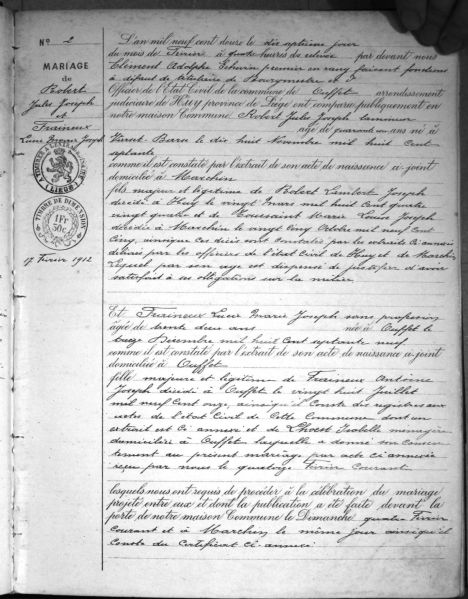 N° 2
MARIAGE
de
Robert
Jules Joseph
et
Fraineux
Lucie Marie Joseph
TIMBRE DE DIMENSION
1 Fr
50c
17 Février 1912
L'an mil neuf cent douze le dix septième jour
du mois de Février à quatre heures de relevée par devant nous
Clément Adolphe premier en rang faisant fonctions
à défaut de titulaire de Bourgmestre et
Officier de l'Etat Civil de la commune de Ouffet arrondissement
judiciaire de Huy province de Liège ont comparu publiquement en
notre maison Commune Robert Jules Joseph
âgé de quarante un ans né à
le dix huit Novembre mil huit cent
septante
comme il est constaté par l'extrait de son acte de naissance ci-joint
domicilié à Marchin
fils majeur et légitime de Robert Lambert Joseph
décédé à Huy le vingt Mars mil huit cent quatre
vingt quatre et de Toussaint Marie Louise Joseph
décédée à Marchin le vingt cinq Octobre mil neuf cent
cinq, ainsi que ces décès sont constatés par les extraits ci annexés
délivrés par les officiers de l'état Civil de Huy et de Marchin
Lequel par son âge est dispensé de justifier d'avoir
satisfait à ses obligations sur la milice
Et Fraineux Lucie Marie Joseph sans profession
âgée de trente deux ans née à Ouffet le
Décembre mil huit cent septante neuf
comme il est constaté par l'extrait de son acte de naissance ci-joint
domiciliée à Ouffet
fille majeure et légitime de Fraineux Antoine
Joseph décédé à Ouffet le vingt huit Juillet
mil neuf cent onze, ainsi qu'il conste des registres aux
actes de l'état Civil de cette Commune dont un
extrait est ci annexé et de Lhoest Isabelle ménagère
domiciliée à Ouffet laquelle a donné son consen
tement au présent mariage par acte ci annexé
reçu par nous le quatorze Février courant
lesquels nous ont requis de procéder à la célébration du mariage
projeté entre eux et dont la publication a été faite devant la
porte de notre maison Commune le Dimanche quatre Février
courant et à Marchin le même jour ainsi qu'il
conste du certificat ci-annexé